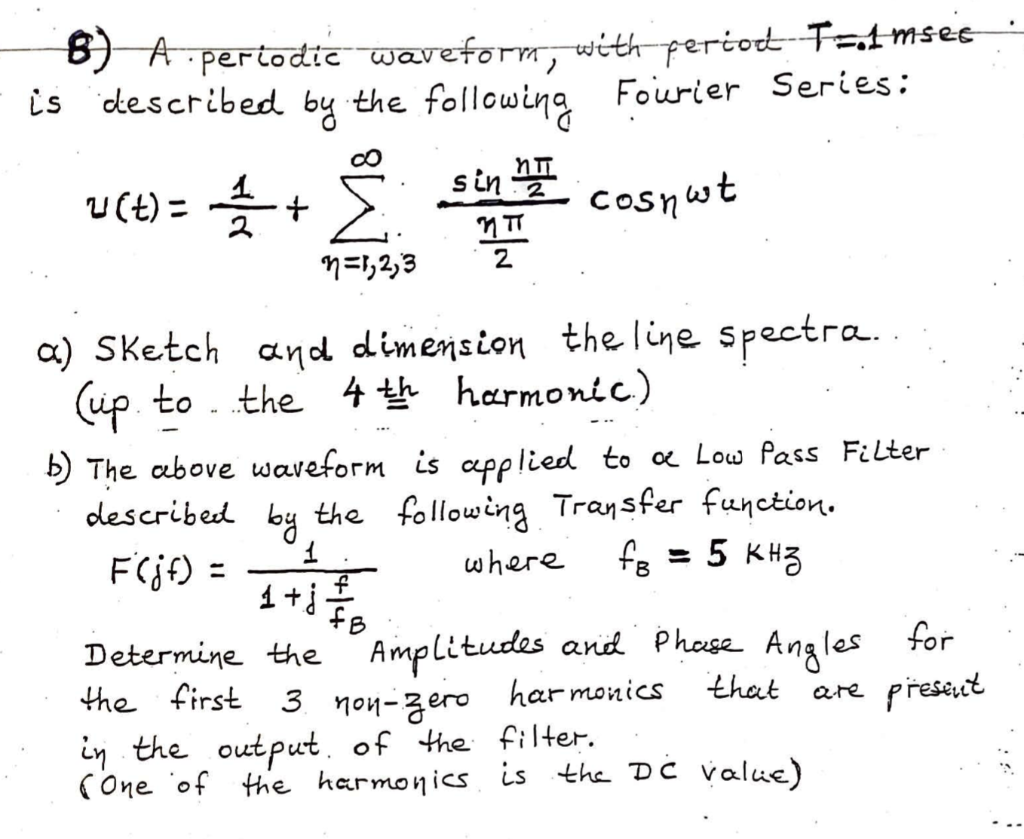 8) A periodic waveform, with period T=.1 msec
is described by the following Fourier Series:
v(t) = 1/2 + ∞ Σ n=1,2,3 (sin nπ/2)/(nπ/2) cos nωt
a) Sketch and dimension the line spectra.
(up to the 4 th harmonic)
b) The above waveform is applied to a Low Pass Filter
described by the following Transfer function.
F(jf) = 1/(1 + j f/fB) where fB = 5 KHz
Determine the Amplitudes and Phase Angles for
the first 3 non-zero harmonics that are present
in the output of the filter.
(One of the harmonics is the DC value)